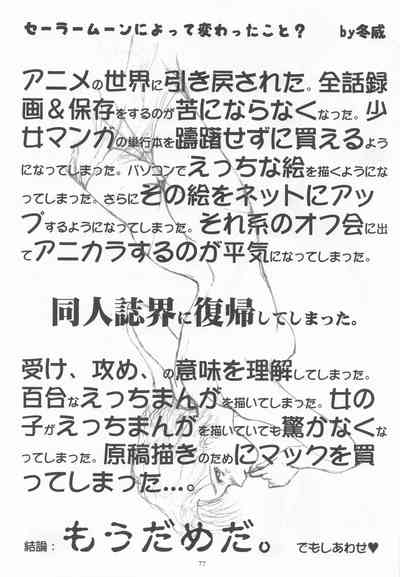 セーラームーンによって変わったこと？ by冬威
アニメの世界に引き戻された。全話録
画＆保存をするのが苦にならなくなった。少
女マンガの単行本を躊躇せずに買えるよう
になってしまった。パソコンでえっちな絵を描くようにな
ってしまった。さらにその絵をネットにアッ
プするようになってしまった。それ系のオフ会に出
てアニカラするのが平気になってしまった。
同人誌界に復帰してしまった。
受け、攻め、の意味を理解してしまった。
百合なえっちまんがを描いてしまった。女の
子がえっちまんがを描いていても驚かなくな
ってしまった。原稿描きのためにマックを買
ってしまった…。
結論：もうだめだ。でもしあわせ♥
77